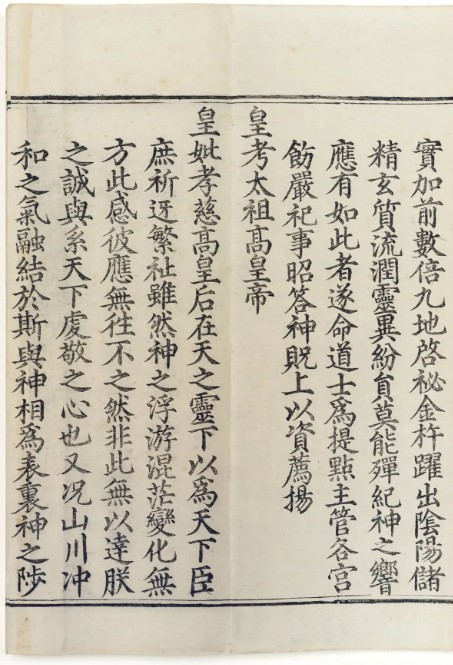 實加前數倍九地啓祕金杵躍出隂陽儲
精玄質流潤靈異紛負莫能殫紀神之響
應有如此者遂命道士爲提點主管各宫
飭嚴祀事昭荅神貺上以資薦揚
皇考太祖髙皇帝
皇妣孝慈髙皇后在天之靈下以爲天下臣
庶祈迓繁祉雖然神之浮游混茫變化無
方此感彼應無徃不之然非此無以達朕
之誠與系天下䖍敬之心也又况山川冲
和之氣融結於斯與神相爲表裏神之陟